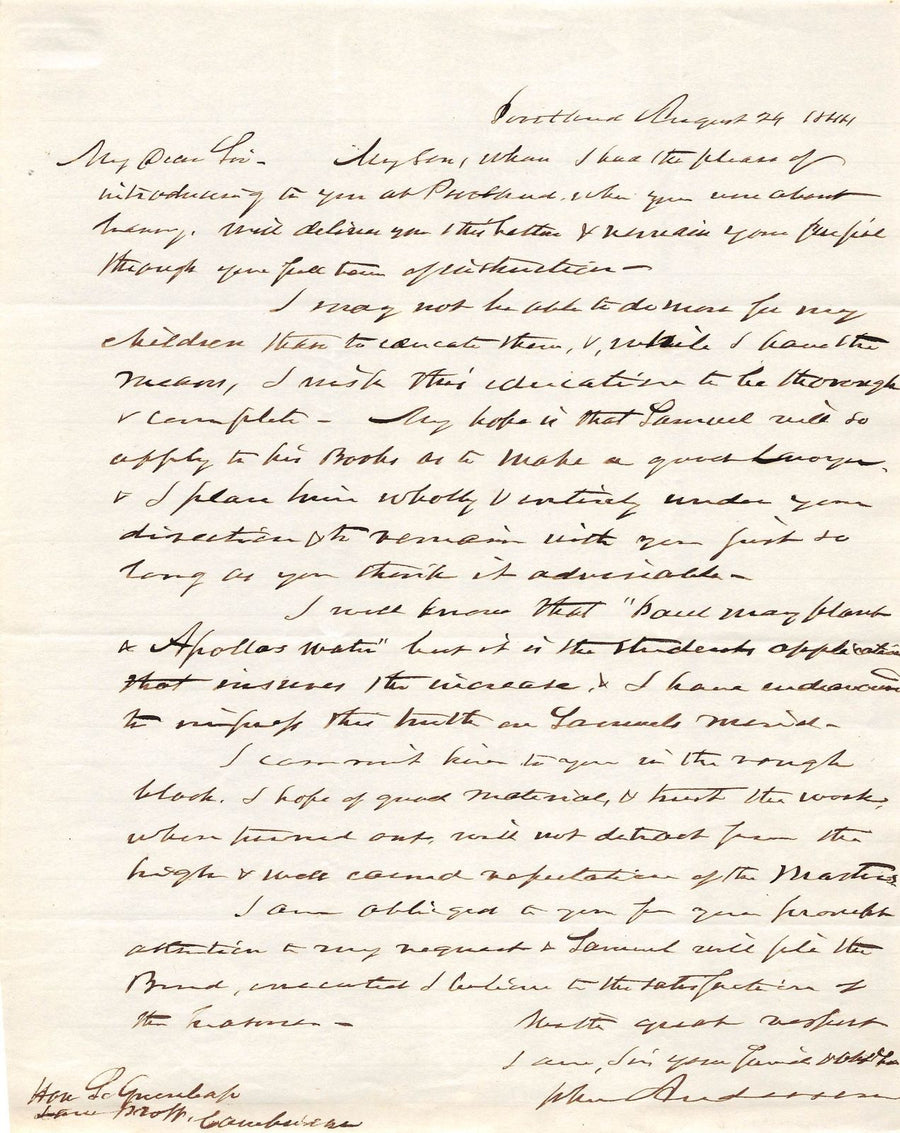 Portland August 24 1844
My Dear Sir - My Son, whom I had the pleasure of
introducing to you at Portland, when you were about
leaving, will deliver you this letter & remain your pupil
through your full term of instruction -
I may not be able to do more for my
children than to educate them, &, while I have the
means, I wish this education to be thorough
& complete - My hope is that Samuel will so
apply to his Books as to make a good Lawyer,
& I place him wholly & entirely under your
direction & to remain with you just so
long as you think it advisable -
I well know that "Paul may plant
& Apollas water" but it is the students application
that insures the increase, & I have endeavored
to impress this truth on Samuels mind -
I commit him to you in the rough
block, I hope of good material, & trust the work,
when turned out, will not detract from the
high & well earned reputation of the Masters
I am obliged to you for your prompt
attention to my request & Samuel will file the
Bond, executed I believe to the satisfaction of
the
With great respect
I am, Sir your friend & Obt
John Anderson
Hon S. Greenleaf
Law Proff,
Cambridge